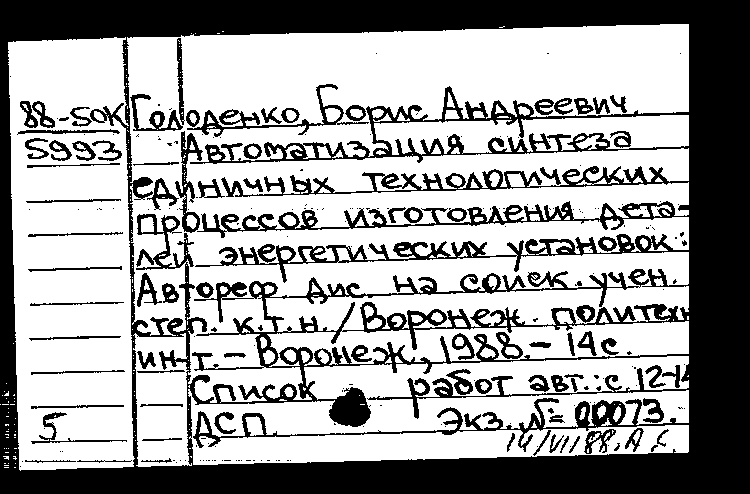 88-50К Голоденко, Борис Андреевич.
5993 Автоматизация синтеза
единичных технологических
процессов изготовления дета-
лей энергетических установок:
Автореф. дис. на соиск. учен.
степ. к.т.н. / Воронеж. политехн
ин-т. - Воронеж, 1988. - 14 с.
Список работ авт.: с. 12-14
5. ДСП. Экз. № 00073.
14/VII 88.